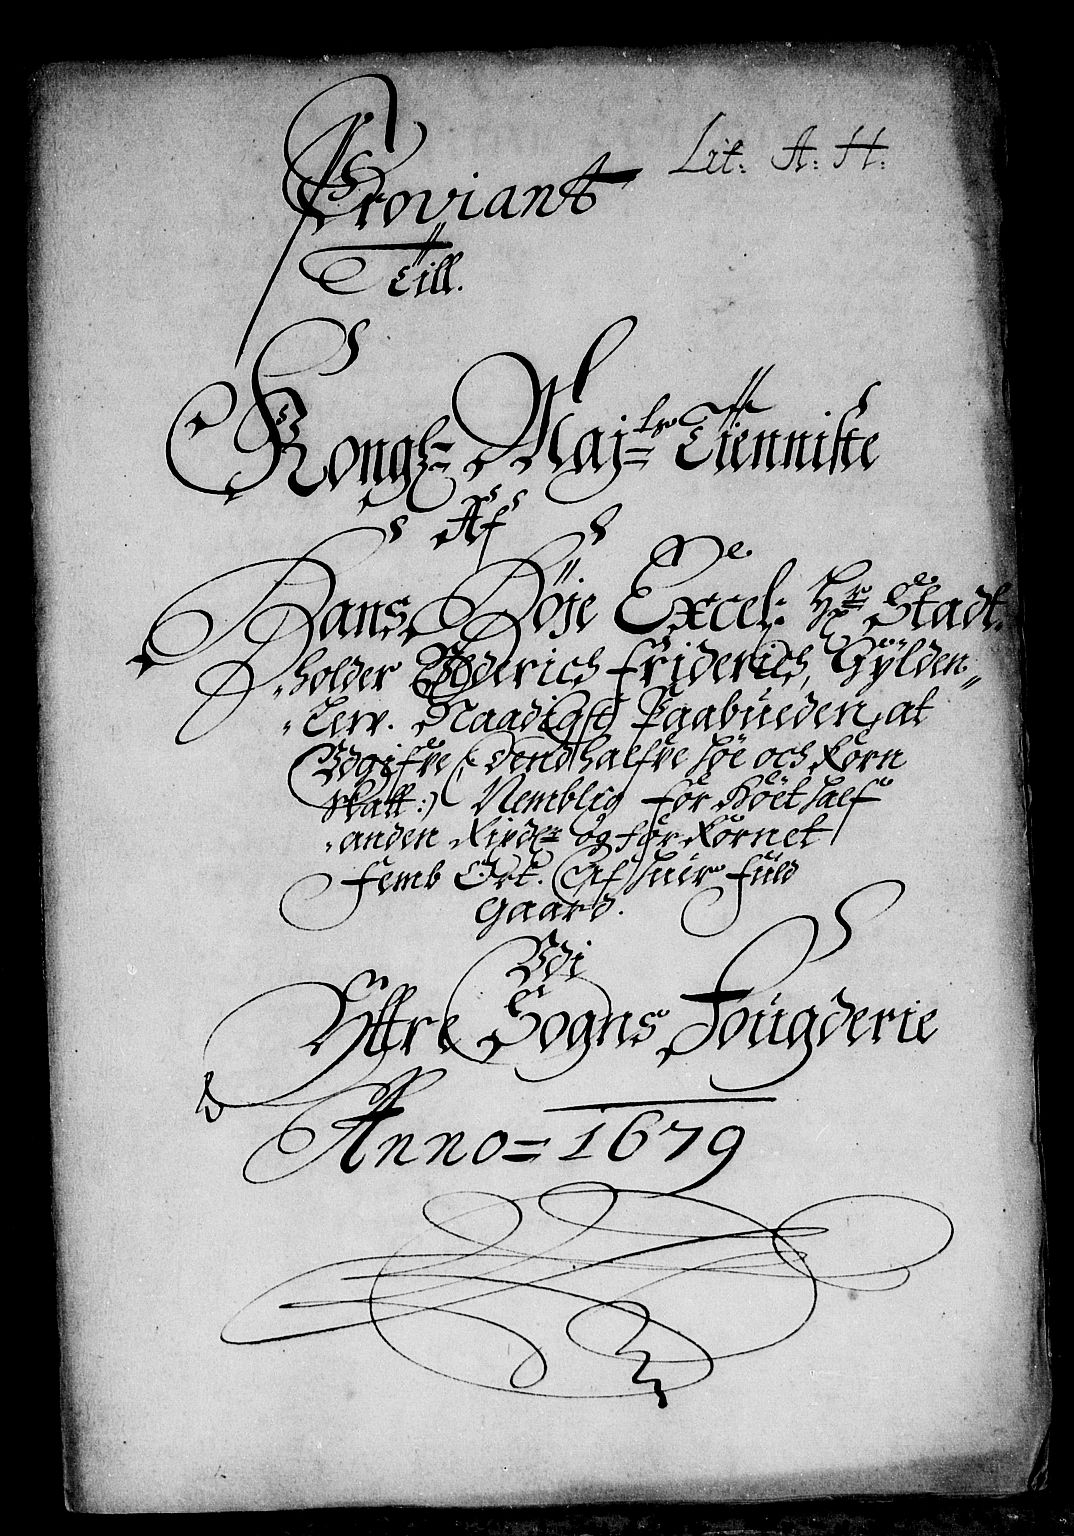 Lit: A: H:
Proviant
Till.
Kongl: Maj:ts Tienniste
Af
Hans Høje Excel: Hr Stadt,,
,,holder Uderich Friderich, Gÿlden,,
,,Lew. Naadigst Paabueden, at
Udgifve (: Dend halfve høe och Korn
skatt :) Nemblig for Höet half
,,anden Rixdr og for Kornet
Femb Ort. Af huer fuld
Gaard.
Udi
Yttre Sogns Fougderie
Anno = 1679